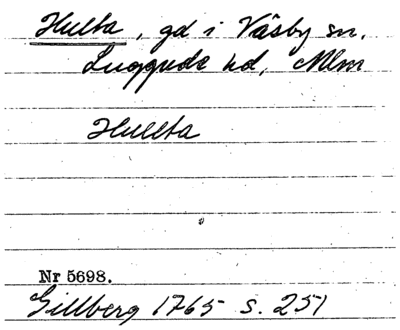 Hulta, gd i Väsby sn,
Luggude hd, Mlm
Hullta
Nr 5698.
Gillberg 1765 s. 251